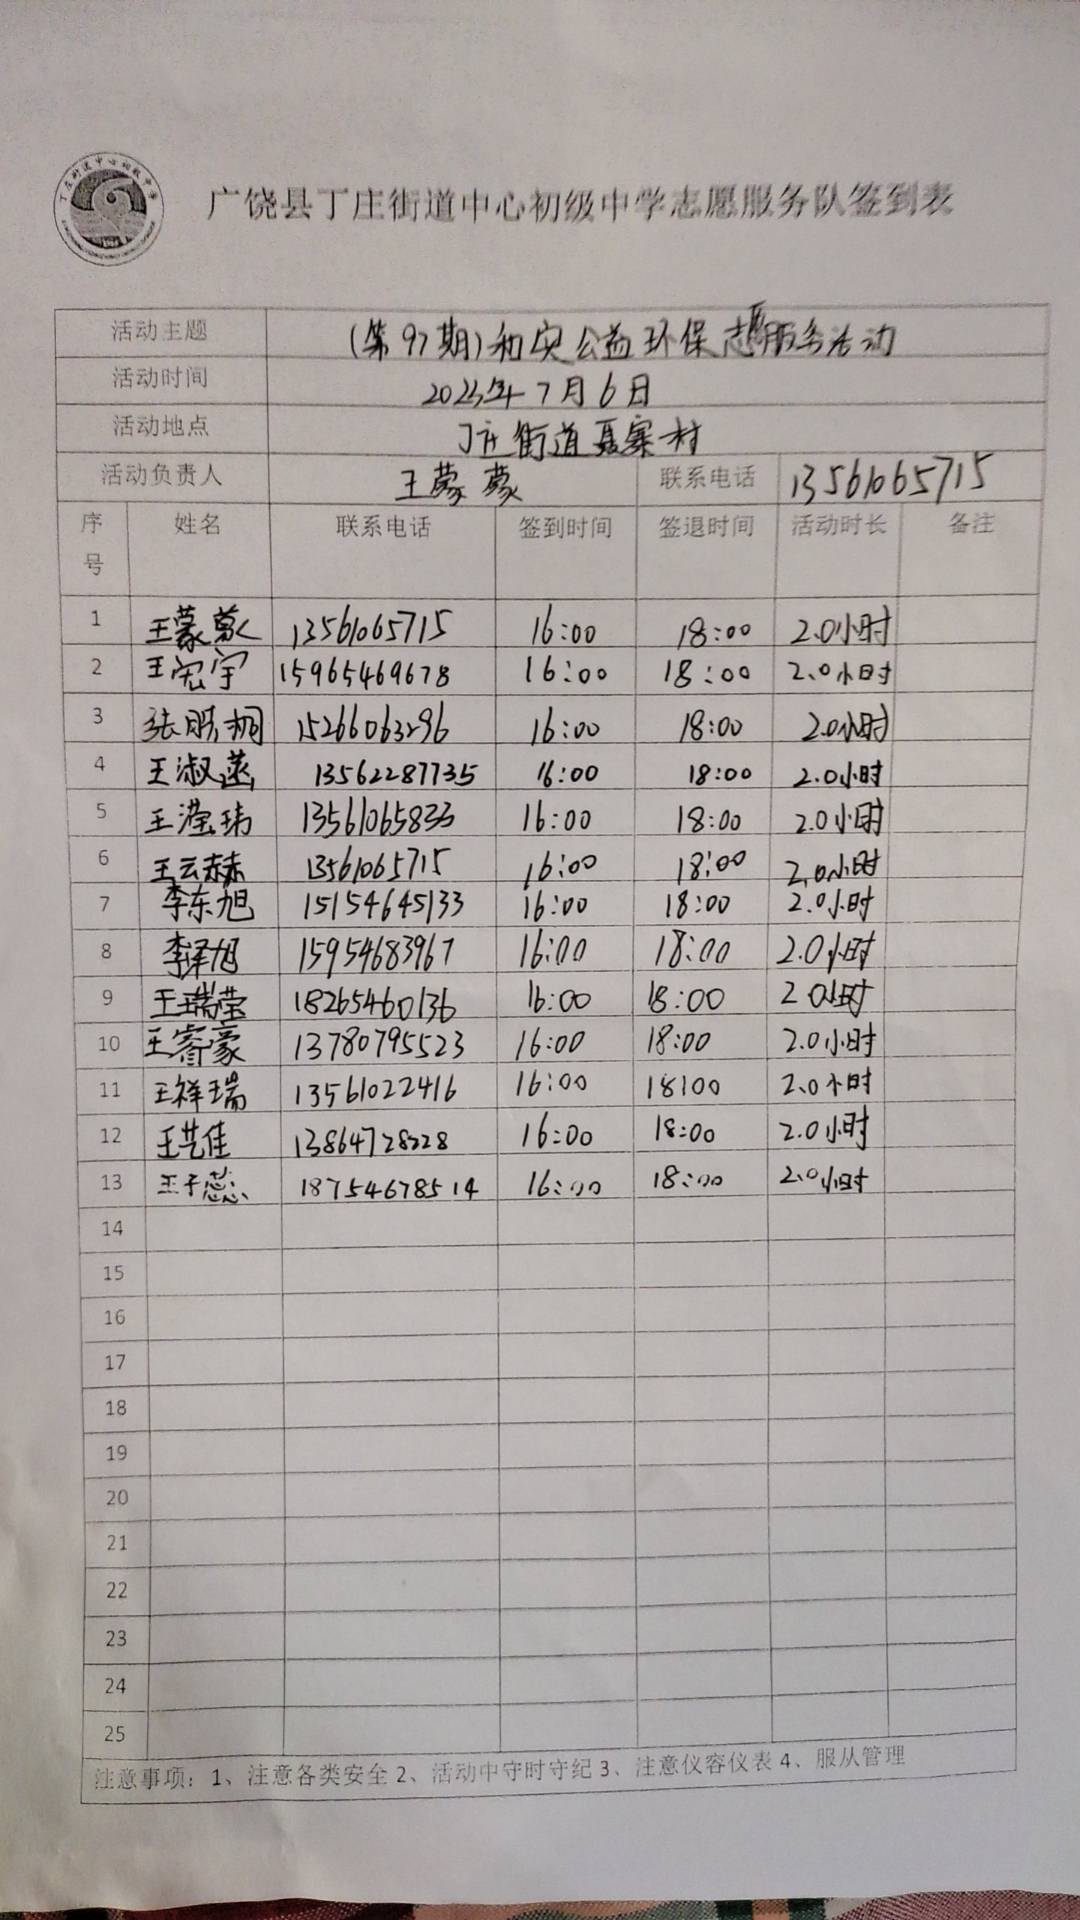 丁庄街道中心初级中学
广饶县丁庄街道中心初级中学志愿服务队签到表
活动主题 (第97期)和安公益环保志愿服务活动
活动时间 2023年7月6日
活动地点 丁庄街道聂寨村
活动负责人 王蒙蒙 联系电话 13561065715
序号 姓名 联系电话 签到时间 签退时间 活动时长 备注
1 王蒙蒙 13561065715 16:00 18:00 2.0小时
2 王宏宇 15965469678 16:00 18:00 2.0小时
3 张 桐 15266063296 16:00 18:00 2.0小时
4 王淑涵 13562287735 16:00 18:00 2.0小时
5 王滢玮 13561065833 16:00 18:00 2.0小时
6 王云赫 13561065715 16:00 18:00 2.0小时
7 李东旭 15154645133 16:00 18:00 2.0小时
8 李泽旭 15954683967 16:00 18:00 2.0小时
9 王瑞莹 18265460136 16:00 18:00 2.0小时
10 王睿豪 13780795523 16:00 18:00 2.0小时
11 王祥瑞 13561022416 16:00 18:00 2.0小时
12 王艺佳 13864728228 16:00 18:00 2.0小时
13 王子蕊 18754678514 16:00 18:00 2.0小时
14
15
16
17
18
19
20
21
22
23
24
25
注意事项：1、注意各类安全 2、活动中守时守纪 3、注意仪容仪表 4、服从管理